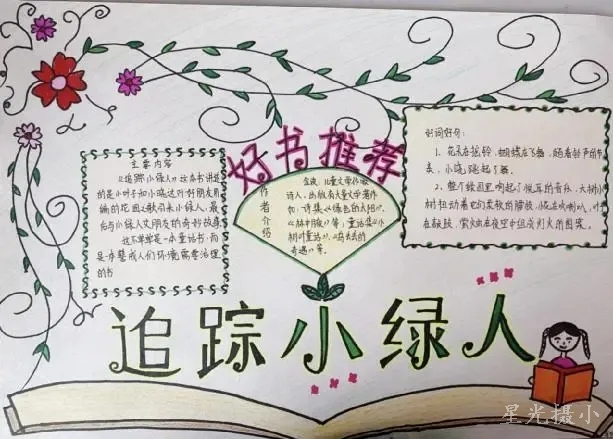 好书推荐
主要内容
《追踪小绿人》这本书讲述
的是小叶子和小晓这对好朋友用
花园之歌引来小绿人,最
后与小绿人交朋友的奇妙故事
这不单单是一本童话书,而
是一本警戒人们环境需要治理
的书
作者介绍
金波,儿童文学作家
诗人,出版有大量文学著作
如:诗集《绿色的太阳》
《林中月夜》等;童话集《小
树叶童话》、《乌丢丢的
奇遇》等。
好词好句:
1、花朵在摇铃,蝴蝶在飞舞,随着铃声的节
奏,小晓跳起了舞。
2、整个绿园里响起了悦耳的音乐,大树小
树扭动着它们柔软的腰肢,花在吹喇叭,叶
在鼓掌,萤火虫在夜空中组成灯火的图案。
追踪小绿人
星光摄小